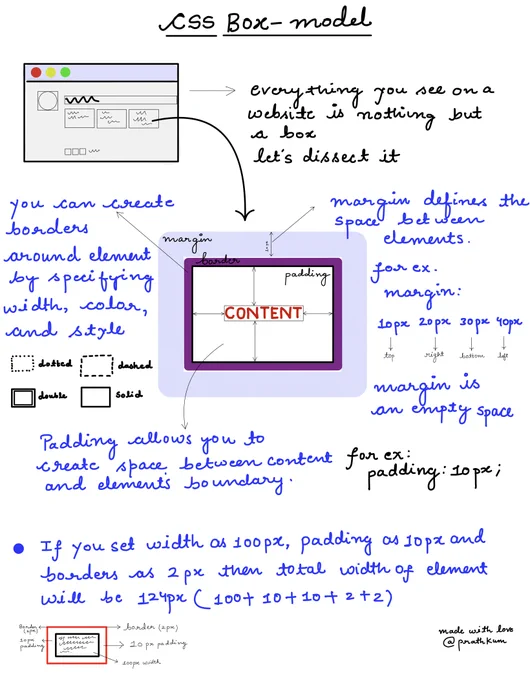 CSS Box-model
everything you see on a
website is nothing but
a box
let's dissect it
you can create
borders
around element
by specifying
width, color,
and style
dotted
dashed
double
Solid
margin
border
padding
CONTENT
margin defines the
space between
elements.
for ex.
margin:
10px 20px 30px 40px
top right bottom left
margin is
an empty space
Padding allows you to
create space between content
and elements boundary.
for ex:
padding: 10px;
If you set width as 100px, padding as 10px and
borders as 2px then total width of element
will be 124px (100+10+10+2+2)
Border
(2px)
10px
padding
border (2px)
10 px padding
100px width
made with love
@prathkum